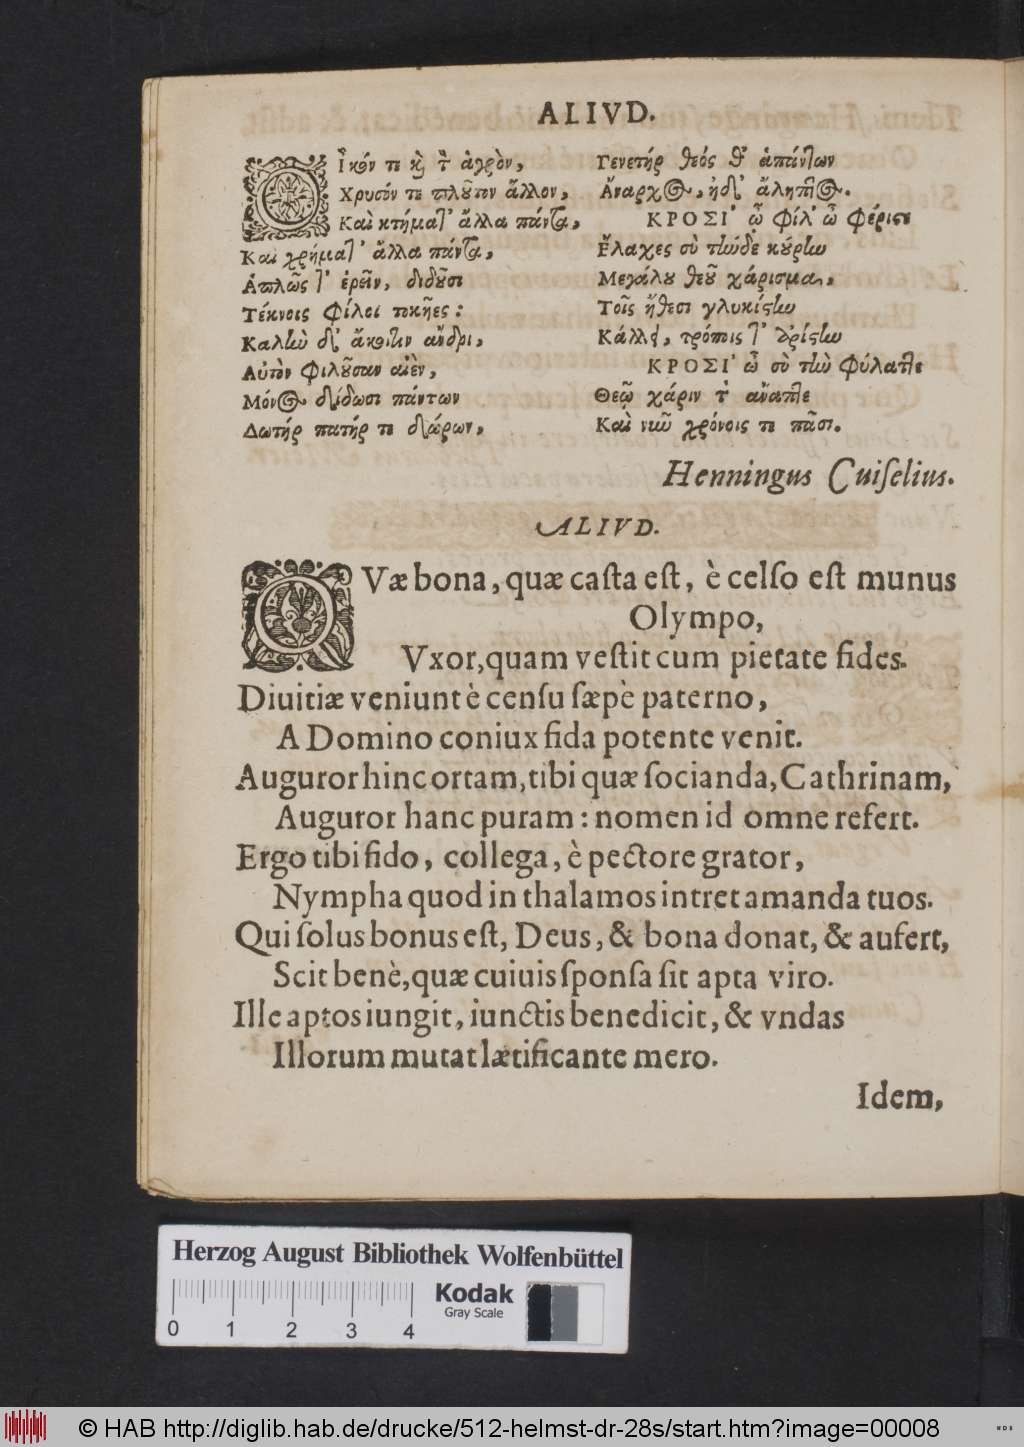 ALIVD.
Οἶκόν τε καὶ τ' ἀγρὸν,
Χρυσόν τε πλοῦτον ἄλλον,
Καὶ κτήματ' ἄλλα πάντα,
Καὶ χρήματ' ἄλλα πάντα,
Ἁπλῶς τ' ἐρεῖν, διδοῦσι
Τέκνοις φίλοι τοκῆες:
Καλὴν δ' ἄκοιτιν ἀνδρὶ,
Αὐτὸν φιλοῦσαν αἰὲν,
Μόνος δίδωσι πάντων
Δωτήρ πατήρ τε δώρων,
Γενετήρ θεός θ' ἁπάντων
Ἄναρχος, ἠδ' ἄληπτος.
ΚΡΟΣΙ' ὦ φίλ' ὦ φέριστε
Ἔλαχες σὺ τήνδε κούρην
Μεγάλου θεοῦ χάρισμα,
Τοῖς ἤθεσι γλυκίστην
Κάλλει, τρόποις τ' ἀρίστην
ΚΡΟΣΙ' ὦ σὺ τὴν φύλαττε
Θεῷ χάριν τ' ἄναπτε
Καὶ νῦν χρόνοις τε πᾶσι.
Henningus Cuiſelius.
ALIVD.
QVæ bona, quæ caſta eſt, è celſo eſt munus
Olympo,
Vxor, quam veſtit cum pietate fides.
Diuitiæ veniunt è cenſu ſæpè paterno,
A Domino coniux fida potente venit.
Auguror hinc ortam, tibi quæ ſocianda, Cathrinam,
Auguror hanc puram: nomen id omne refert.
Ergo tibi fido, collega, è pectore grator,
Nympha quod in thalamos intret amanda tuos.
Qui ſolus bonus eſt, Deus, & bona donat, & aufert,
Scit benè, quæ cuiuis ſponſa ſit apta viro.
Ille aptos iungit, iunctis benedicit, & vndas
Illorum mutat lætificante mero.
Idem,
Herzog August Bibliothek Wolfenbüttel
Kodak
Gray Scale
0 1 2 3 4
© HAB http://diglib.hab.de/drucke/512-helmst-dr-28s/start.htm?image=00008